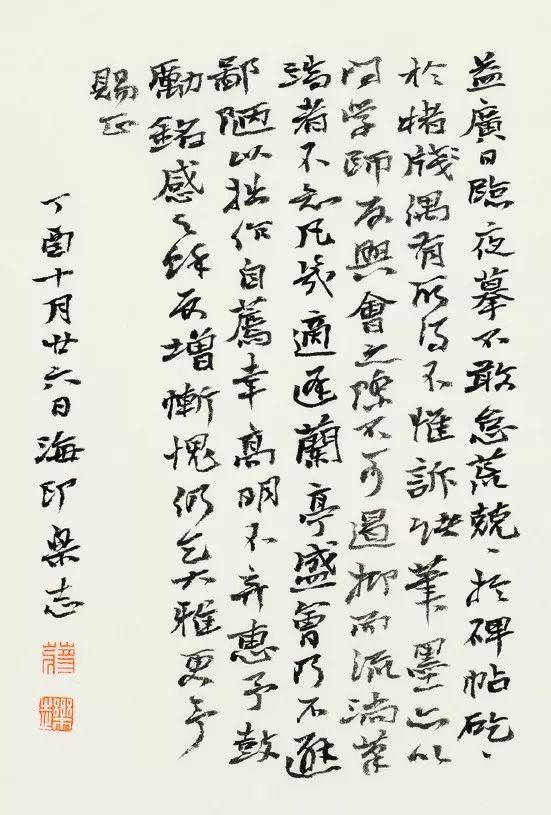 益廣日臨夜摹不敢怠荒兢、於碑帖矻、
於楮牋偶有所得不惟訴諸筆墨亦以
問学師友興會之際不可遏抑而流淌筆
端者不知凡幾適逢蘭亭盛會乃不避
鄙陋以拙作自薦幸高明不弃惠予鼓
勵銘感之餘反增慚愧仍乞大雅更予
賜正
丁酉十月廿六日海印樂志